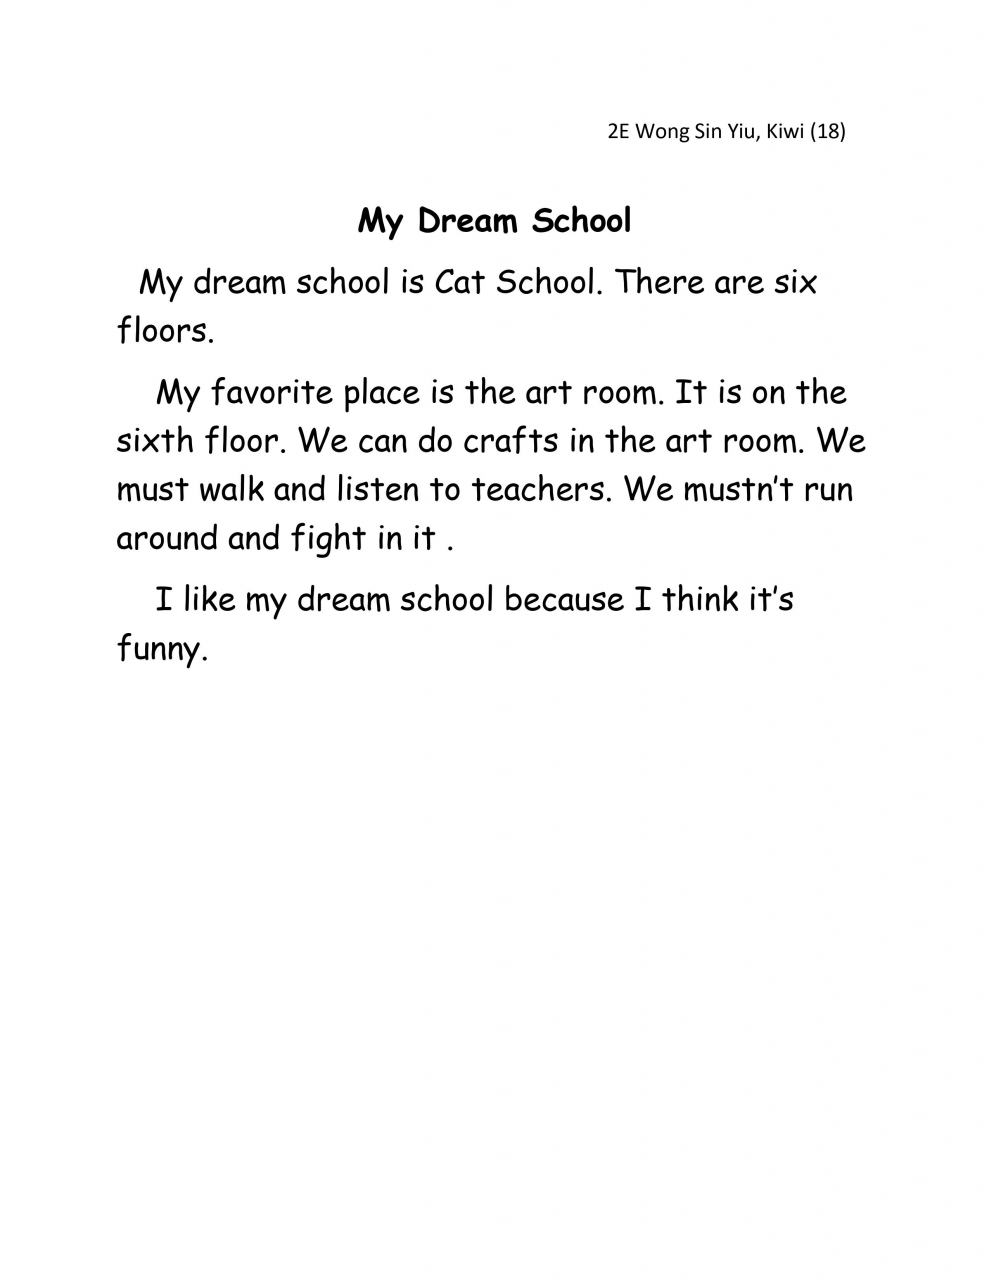 2E Wong Sin Yiu, Kiwi (18)
My Dream School
My dream school is Cat School. There are six
floors.
My favorite place is the art room. It is on the
sixth floor. We can do crafts in the art room. We
must walk and listen to teachers. We mustn’t run
around and fight in it .
I like my dream school because I think it’s
funny.